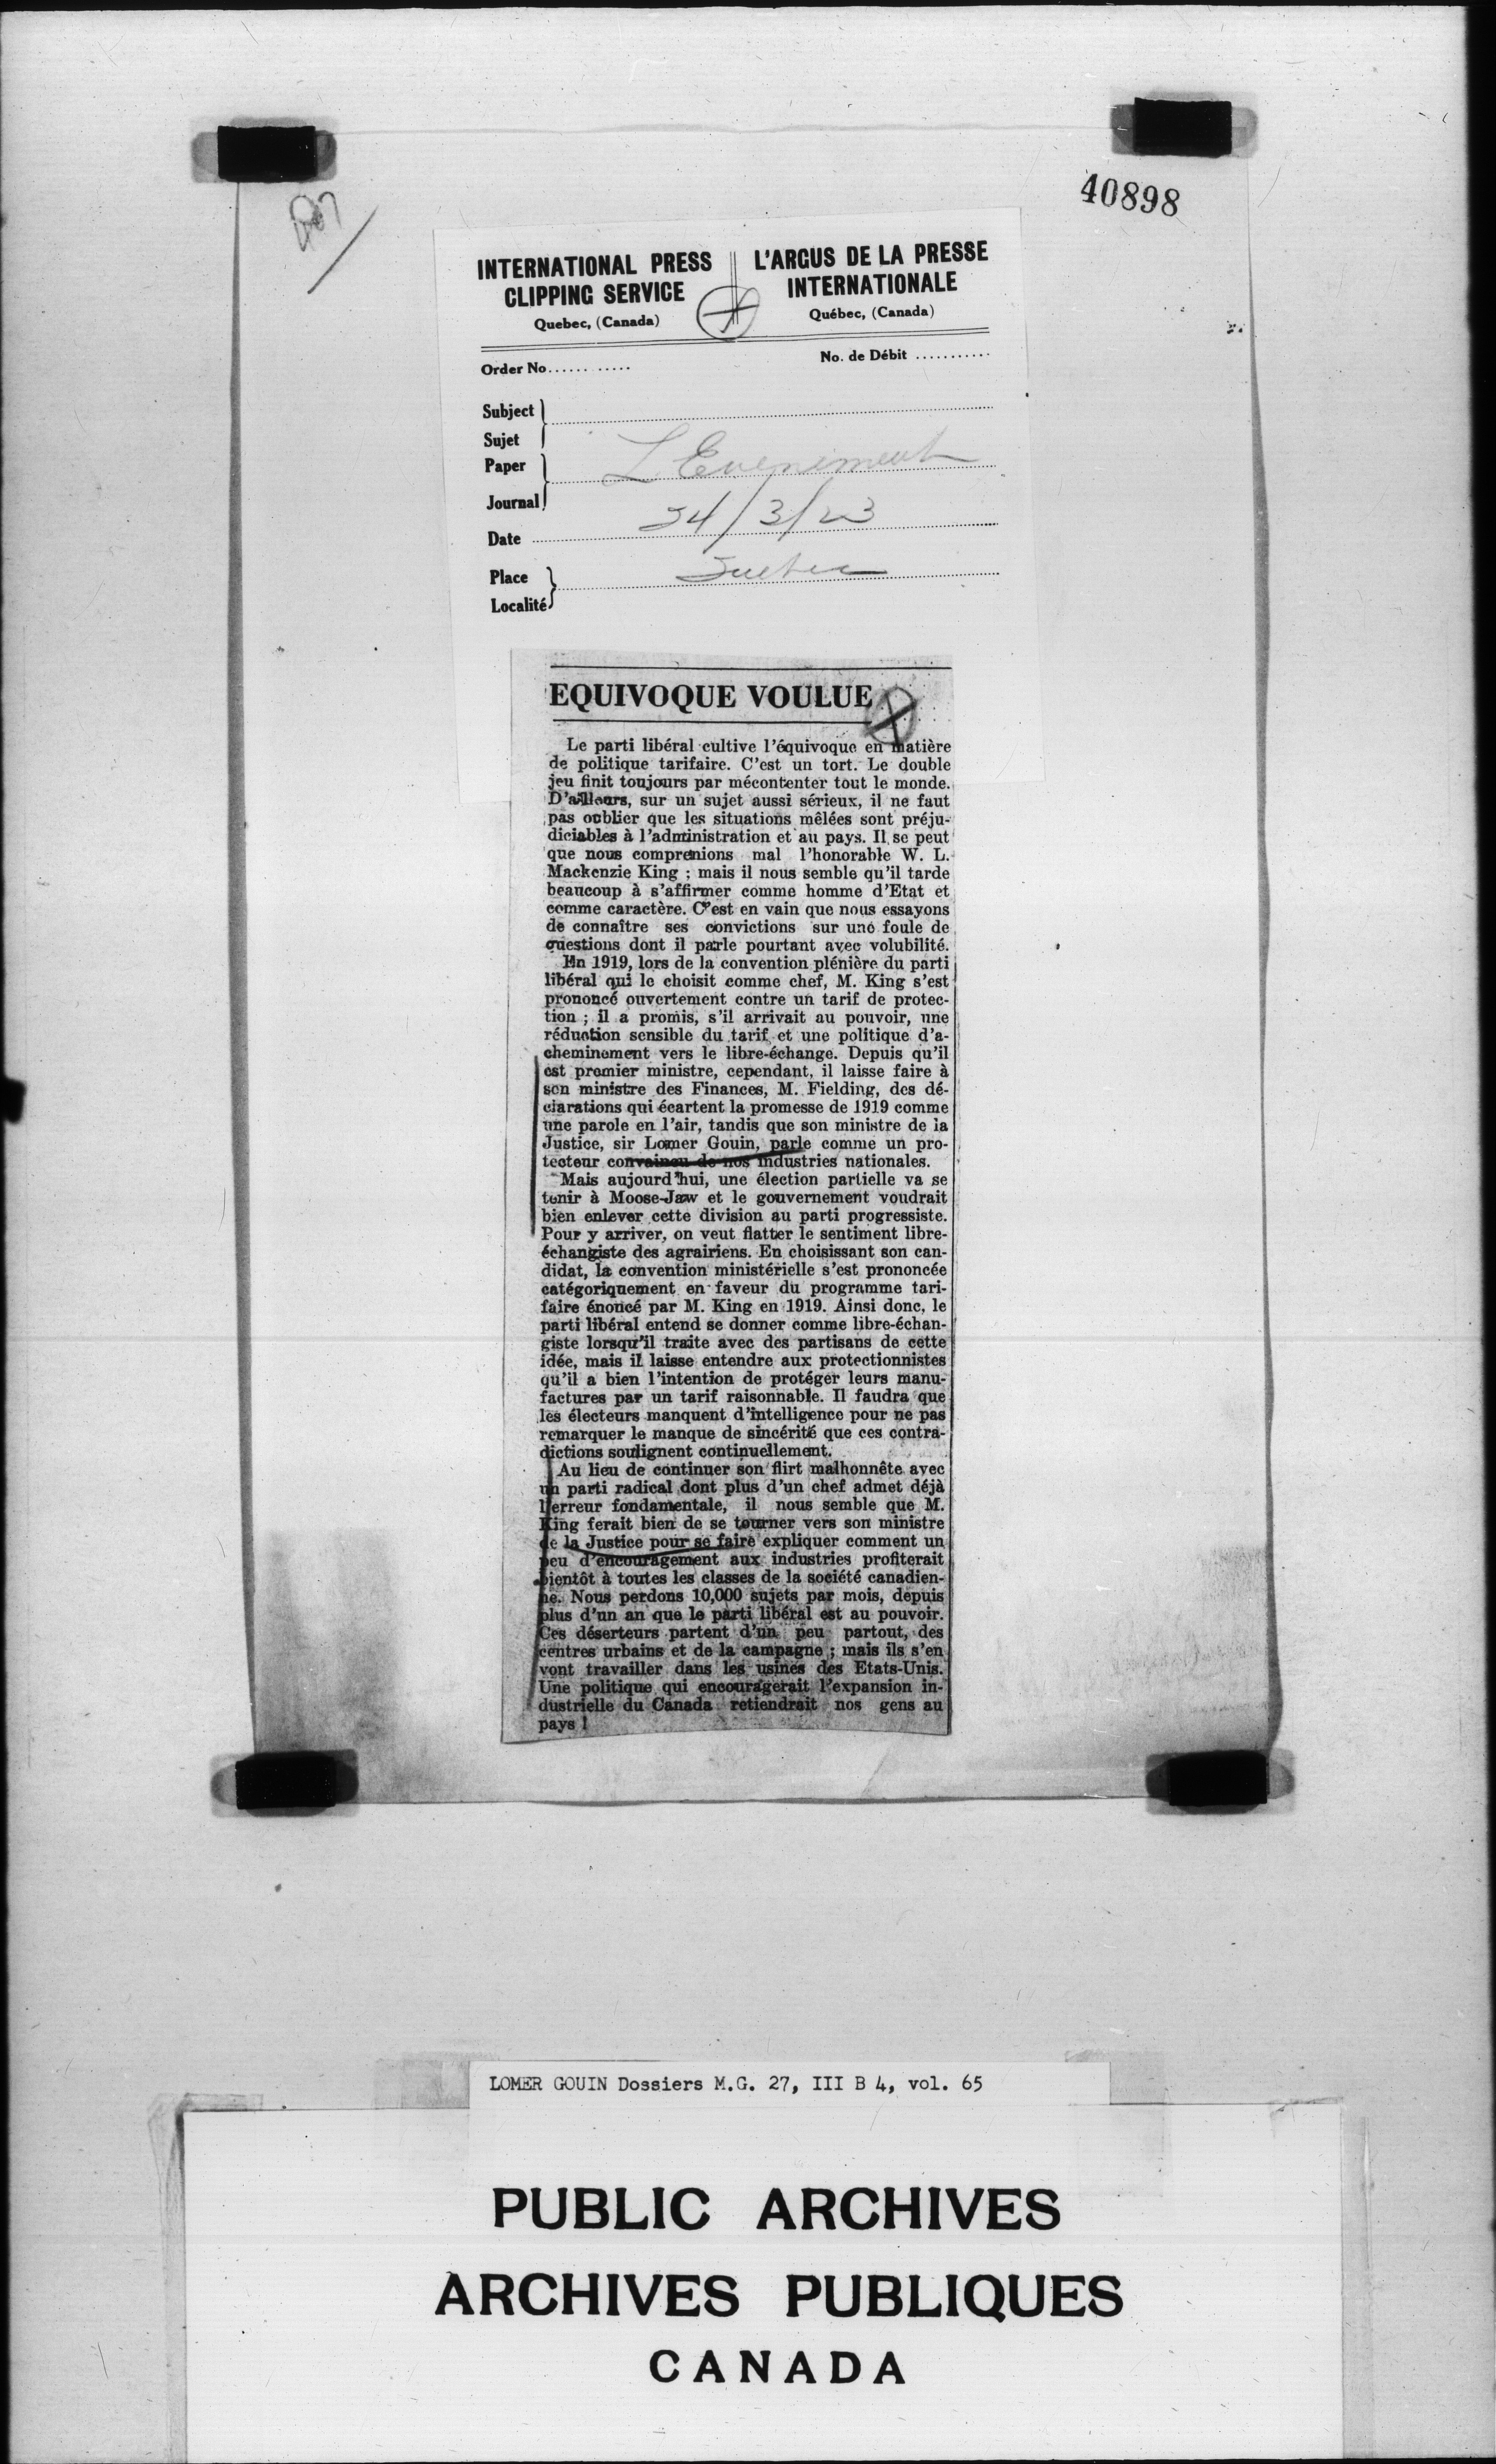 40898
INTERNATIONAL PRESS
CLIPPING SERVICE
Quebec, (Canada)
L'ARGUS DE LA PRESSE
INTERNATIONALE
Québec, (Canada)
Order No...... .....
No. de Débit ...........
Subject
Sujet
Paper
Journal
L'Evenement
Date 24/3/23
Place
Localité
Quebec
EQUIVOQUE VOULUE
Le parti libéral cultive l'équivoque en matière
de politique tarifaire. C'est un tort. Le double
jeu finit toujours par mécontenter tout le monde.
D'ailleurs, sur un sujet aussi sérieux, il ne faut
pas oublier que les situations mêlées sont préju-
diciables à l'administration et au pays. Il se peut
que nous comprenions mal l'honorable W. L.
Mackenzie King ; mais il nous semble qu'il tarde
beaucoup à s'affirmer comme homme d'Etat et
comme caractère. C'est en vain que nous essayons
de connaître ses convictions sur une foule de
questions dont il parle pourtant avec volubilité.
En 1919, lors de la convention plénière du parti
libéral qui le choisit comme chef, M. King s'est
prononcé ouvertement contre un tarif de protec-
tion ; il a promis, s'il arrivait au pouvoir, une
réduction sensible du tarif et une politique d'a-
cheminement vers le libre-échange. Depuis qu'il
est premier ministre, cependant, il laisse faire à
son ministre des Finances, M. Fielding, des dé-
clarations qui écartent la promesse de 1919 comme
une parole en l'air, tandis que son ministre de la
Justice, sir Lomer Gouin, parle comme un pro-
tecteur convaincu de nos industries nationales.
Mais aujourd'hui, une élection partielle va se
tenir à Moose-Jaw et le gouvernement voudrait
bien enlever cette division au parti progressiste.
Pour y arriver, on veut flatter le sentiment libre-
échangiste des agrairiens. En choisissant son can-
didat, la convention ministérielle s'est prononcée
catégoriquement en faveur du programme tari-
faire énoncé par M. King en 1919. Ainsi donc, le
parti libéral entend se donner comme libre-échan-
giste lorsqu'il traite avec des partisans de cette
idée, mais il laisse entendre aux protectionnistes
qu'il a bien l'intention de protéger leurs manu-
factures par un tarif raisonnable. Il faudra que
les électeurs manquent d'intelligence pour ne pas
remarquer le manque de sincérité que ces contra-
dictions soulignent continuellement.
Au lieu de continuer son flirt malhonnête avec
un parti radical dont plus d'un chef admet déjà
l'erreur fondamentale, il nous semble que M.
King ferait bien de se tourner vers son ministre
de la Justice pour se faire expliquer comment un
peu d'encouragement aux industries profiterait
bientôt à toutes les classes de la société canadien-
ne. Nous perdons 10,000 sujets par mois, depuis
plus d'un an que le parti libéral est au pouvoir.
Ces déserteurs partent d'un peu partout, des
centres urbains et de la campagne ; mais ils s'en
vont travailler dans les usines des Etats-Unis.
Une politique qui encouragerait l'expansion in-
dustrielle du Canada retiendrait nos gens au
pays !
LOMER GOUIN Dossiers M.G. 27, III B 4, vol. 65
PUBLIC ARCHIVES
ARCHIVES PUBLIQUES
CANADA